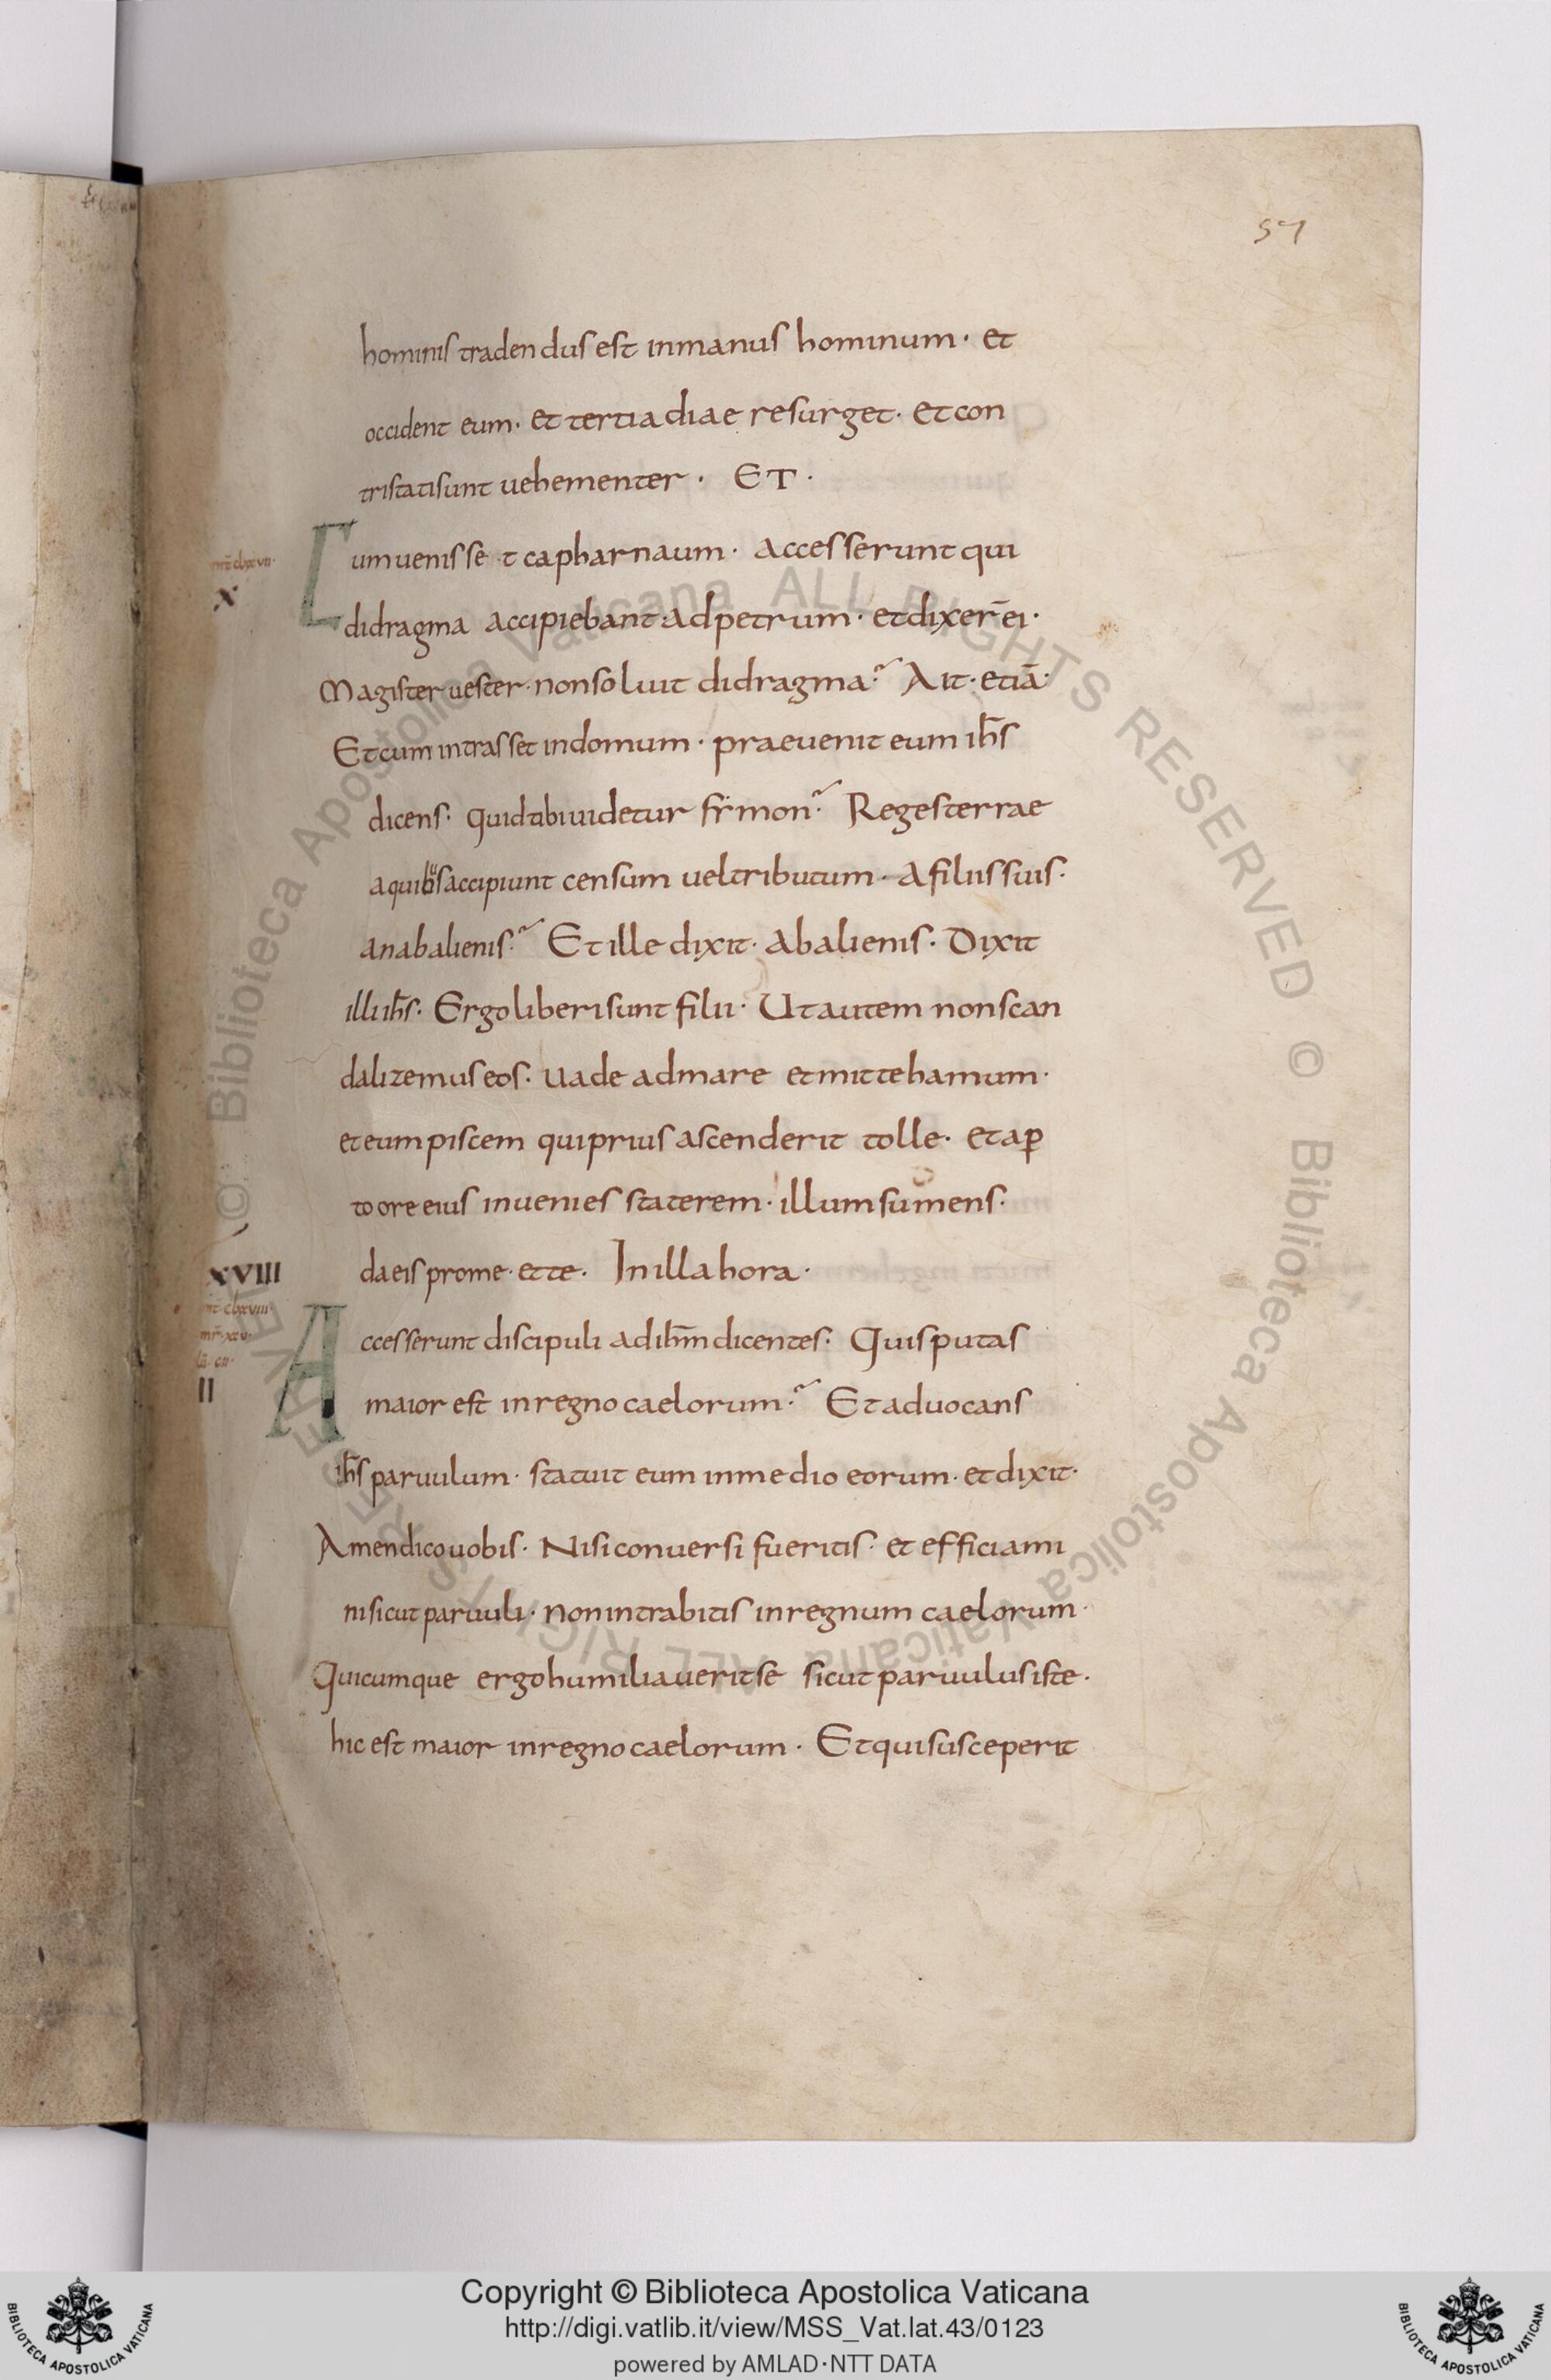 57
hominis tradendus est inmanus hominum · et
occident eum · et tertia diae resurget · et con
tristati sunt uehementer · ET ·
Cum uenisset capharnaum · accesserunt qui
X
didragma accipiebant · ad petrum · et dixer̄ ei ·
Magister uester · non soluit didragma? Ait · etiā ·
Et cum intrasset indomum · praeuenit eum ih̄s
dicens · quid tibi uidetur simon? Reges terrae
a quibus accipiunt censum uel tributum · a filiis suis ·
an ab alienis? Et ille dixit · ab alienis · Dixit
illi ih̄s · Ergo liberi sunt filii · Ut autem non scan
dalizemus eos · uade ad mare et mitte hamum ·
et eum piscem qui prius ascenderit tolle · et aper
to ore eius inuenies staterem · illum sumens ·
XVIII
da eis pro me · et te · In illa hora ·
Accesserunt discipuli ad ih̄m dicentes · Quis putas
II
maior est in regno caelorum? Et aduocans
ih̄s paruulum · statuit eum in medio eorum · et dixit ·
Amen dico uobis · Nisi conuersi fueritis · et efficiami
ni sicut paruuli · non intrabitis in regnum caelorum ·
Quicumque ergo humiliauerit se sicut paruulus iste ·
hic est maior in regno caelorum · Et qui susceperit
© Biblioteca Apostolica Vaticana ALL RIGHTS RESERVED © Biblioteca Apostolica Vaticana ALL RIGHTS RESERVED
Copyright © Biblioteca Apostolica Vaticana
http://digi.vatlib.it/view/MSS_Vat.lat.43/0123
powered by AMLAD·NTT DATA
BIBLIOTECA APOSTOLICA VATICANA
BIBLIOTECA APOSTOLICA VATICANA